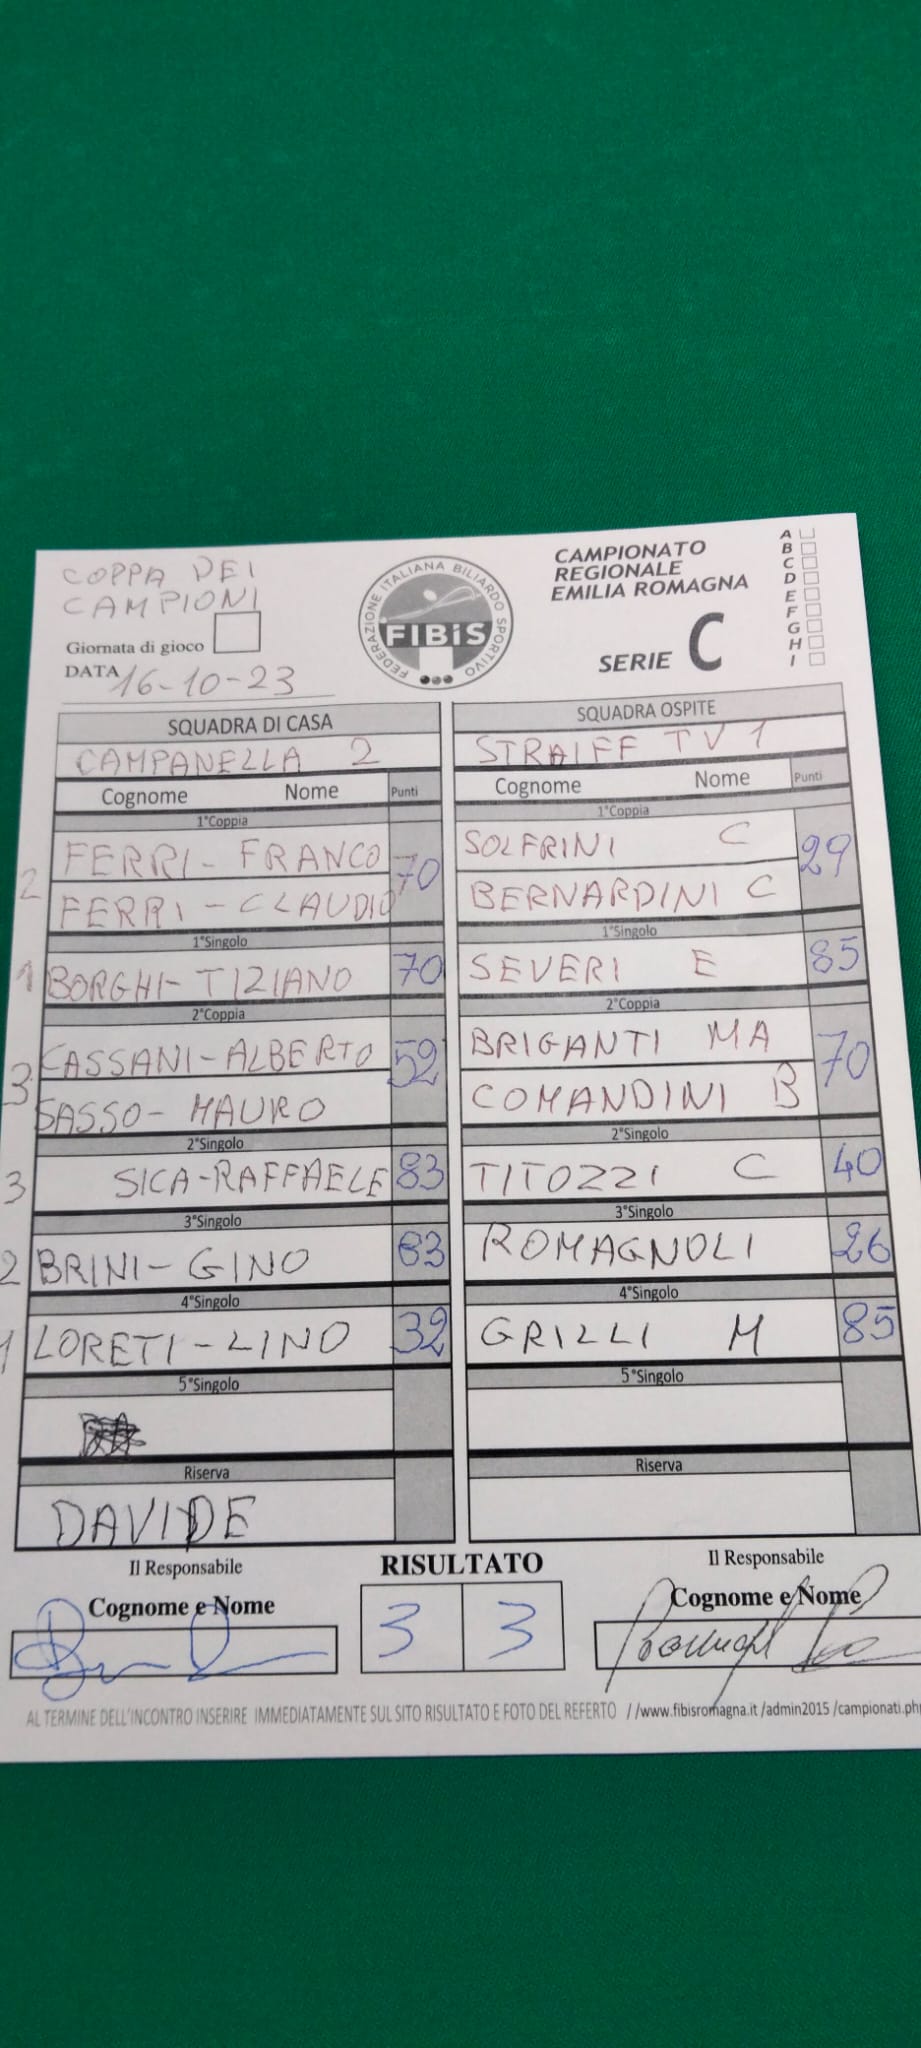 COPPA DEI
CAMPIONI
Giornata di gioco
DATA 16-10-23
FEDERAZIONE ITALIANA BILIARDO SPORTIVO
FIBiS
CAMPIONATO
REGIONALE
EMILIA ROMAGNA
SERIE C
A
B
C
D
E
F
G
H
I
SQUADRA DI CASA
CAMPANELLA 2
Cognome Nome Punti
1°Coppia
2 FERRI - FRANCO 70
FERRI - CLAUDIO
1°Singolo
1 BORGHI - TIZIANO 70
2°Coppia
3 CASSANI - ALBERTO 52
SASSO - MAURO
2°Singolo
3 SICA - RAFFAELE 83
3°Singolo
2 BRINI - GINO 83
4°Singolo
1 LORETI - LINO 32
5°Singolo
Riserva
DAVIDE
Il Responsabile
Cognome e Nome
SQUADRA OSPITE
STRAIFF TV 1
Cognome Nome Punti
1°Coppia
SOLFRINI C 29
BERNARDINI C
1°Singolo
SEVERI E 85
2°Coppia
BRIGANTI MA 70
COMANDINI B
2°Singolo
TITOZZI C 40
3°Singolo
ROMAGNOLI 26
4°Singolo
GRILLI M 85
5°Singolo
Riserva
Il Responsabile
Cognome e Nome
RISULTATO
3 3
AL TERMINE DELL'INCONTRO INSERIRE IMMEDIATAMENTE SUL SITO RISULTATO E FOTO DEL REFERTO //www.fibisromagna.it/admin2015/campionati.php